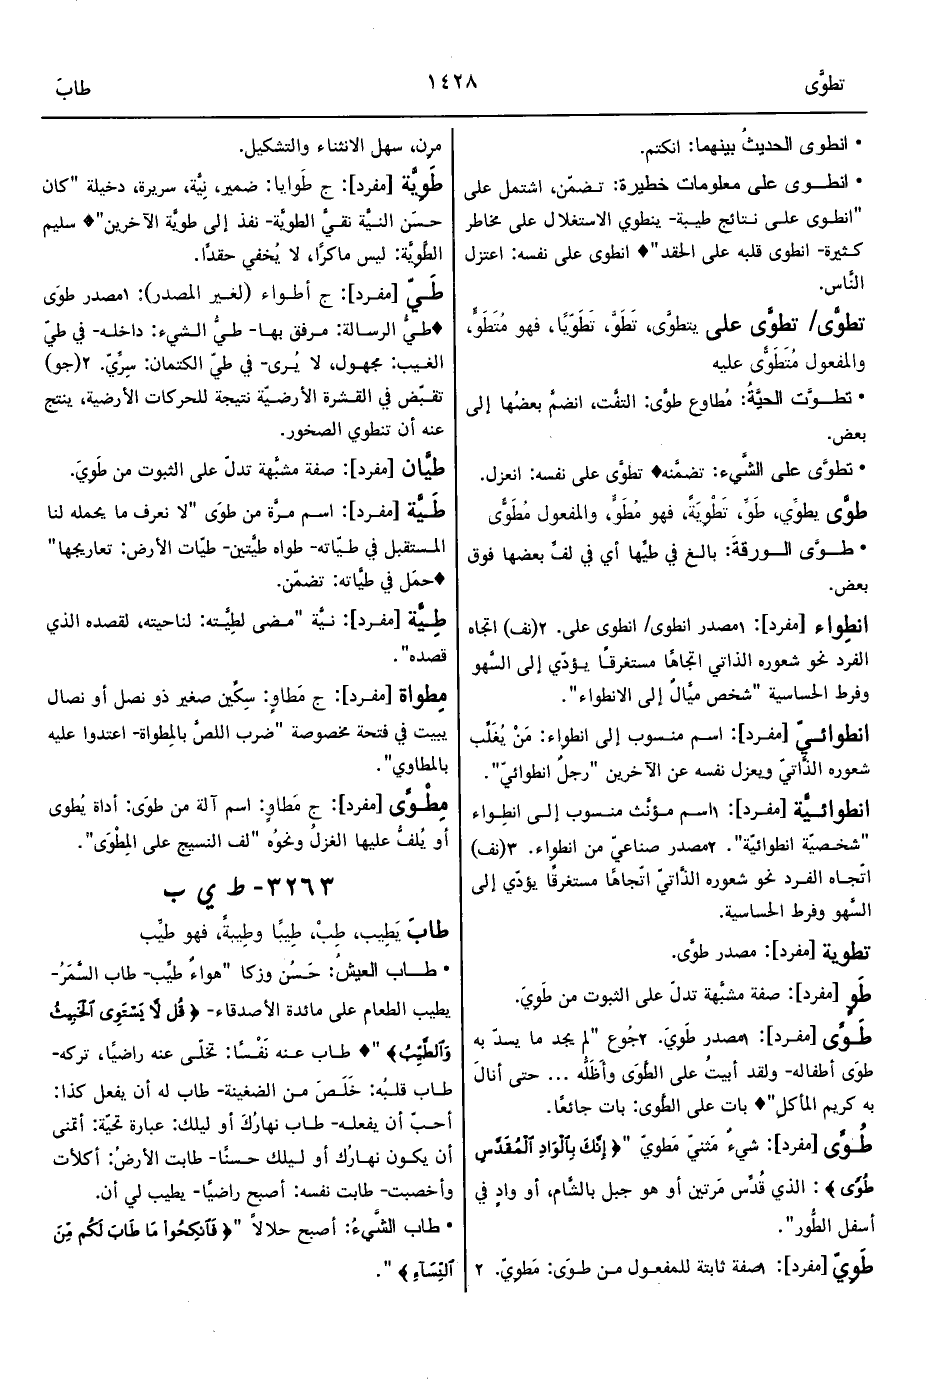 تطوَّى
١٤٢٨
طابَ
• انطوى الحديثُ بينهما: انكتم.
• انطوى على معلومات خطيرة: تضمّن، اشتمل على
"انطوى على نتائج طيبة- ينطوي الاستغلال على مخاطر
كثيرة- انطوى قلبه على الحقد"♦ انطوى على نفسه: اعتزل
النَّاس.
تطوَّى/ تطوَّى على يتطوَّى، تَطَوَّ، تَطَوِّيًا، فهو مُتَطَوٍّ،
والمفعول مُتَطَوًّى عليه
• تطوَّت الحيَّةُ: مُطاوع طوَّى: التفَّت، انضمَّ بعضُها إلى
بعض.
• تطوَّى على الشَّيء: تضمَّنه♦ تطوَّى على نفسه: انعزل.
طوَّى يطوِّي، طَوِّ، تَطْوِيَةً، فهو مُطَوٍّ، والمفعول مُطَوًّى
• طوَّى الورقةَ: بالغ في طيِّها أي في لفِّ بعضها فوق
بعض.
انطِواء [مفرد]: ١مصدر انطوى/ انطوى على. ٢(نف) اتجاه
الفرد نحو شعوره الذاتي اتجاهًا مستغرقًا يؤدّي إلى السَّهو
وفرط الحساسية "شخص ميَّالٌ إلى الانطواء".
انطوائيّ [مفرد]: اسم منسوب إلى انطواء: مَنْ يُغَلِّب
شعوره الذَّاتيّ ويعزل نفسه عن الآخرين "رجلٌ انطوائيّ".
انطوائيَّة [مفرد]: ١اسم مؤنَّث منسوب إلى انطِواء
"شخصيّة انطوائيّة". ٢مصدر صناعيّ من انطواء. ٣(نف)
اتّجاه الفرد نحو شعوره الذَّاتيّ اتّجاهًا مستغرقًا يؤدّي إلى
السَّهو وفرط الحساسية.
تطوية [مفرد]: مصدر طوَّى.
طَوٍ [مفرد]: صفة مشبَّهة تدلّ على الثبوت من طَوِيَ.
طَوًى [مفرد]: ١مصدر طَوِيَ. ٢جُوع "لم يجد ما يسدّ به
طوَى أطفاله- ولقد أبيتُ على الطَّوَى وأَظَلُّه ... حتى أنالَ
به كريم المأكل"♦ بات على الطَّوى: بات جائعًا.
طُوًى [مفرد]: شيءٌ مَثنيّ مَطويّ "﴿ إِنَّكَ بِٱلْوَادِ ٱلْمُقَدَّسِ
طُوًى ﴾: الذي قُدِّس مَرتين أو هو جبل بالشَّام، أو وادٍ في
أسفل الطُّور".
طَوِيّ [مفرد]: ١صفة ثابتة للمفعول من طوَى: مَطويّ. ٢
مرِن، سهل الانثناء والتشكيل.
طَوِيَّة [مفرد]: ج طَوايا: ضمير، نِيَّة، سريرة، دخيلة "كان
حسَن النيَّة نقيّ الطويَّة- نفذ إلى طويَّة الآخرين"♦ سليم
الطَّويَّة: ليس ماكرًا، لا يُخفي حقدًا.
طَيّ [مفرد]: ج أطواء (لغير المصدر): ١مصدر طوَى
♦طيُّ الرسالة: مرفق بها- طيُّ الشيء: داخله- في طيّ
الغيب: مجهول، لا يُرى- في طيّ الكتمان: سِرِّيّ. ٢(جو)
تقبّض في القشرة الأرضيّة نتيجة للحركات الأرضية، ينتج
عنه أن تنطوي الصخور.
طيَّان [مفرد]: صفة مشبَّهة تدلّ على الثبوت من طَوِيَ.
طَيَّة [مفرد]: اسم مرَّة من طوَى "لا نعرف ما يحمله لنا
المستقبل في طيّاته- طواه طيَّتين- طيّات الأرض: تعاريجها"
♦حمَل في طيَّاته: تضمّن.
طِيَّة [مفرد]: نيَّة "مضى لطِيَّته: لناحيته، لقصده الذي
قصده".
مِطواة [مفرد]: ج مَطاوٍ: سكِّين صغير ذو نصل أو نصال
يبيت في فتحة مخصوصة "ضرب اللصَّ بالمِطواة- اعتدوا عليه
بالمطاوي".
مِطْوًى [مفرد]: ج مَطاوٍ: اسم آلة من طوَى: أداة يُطوى
أو يُلفُّ عليها الغزلُ ونحوُه "لف النسيج على المِطْوَى".
٣٢٦٣- ط ي ب
طابَ يَطِيب، طِبْ، طِيبًا وطِيبةً، فهو طيِّب
• طاب العيشُ: حَسُن وزكا "هواءٌ طيِّب- طاب السَّمَرُ-
يطيب الطعام على مائدة الأصدقاء- ﴿ قُل لَّا يَسْتَوِى ٱلْخَبِيثُ
وَٱلطَّيِّبُ ﴾"♦ طاب عنه نَفْسًا: تخلّى عنه راضيًا، تركه-
طاب قلبُه: خَلَصَ من الضغينة- طاب له أن يفعل كذا:
أحبّ أن يفعله- طاب نهارُكَ أو ليلك: عبارة تحيّة: أتمنى
أن يكون نهارُك أو ليلك حسنًا- طابت الأرضُ: أكلأت
وأخصبت- طابت نفسه: أصبح راضيًا- يطيب لي أن.
• طاب الشَّيءُ: أصبح حلالاً "﴿ فَٱنكِحُوا۟ مَا طَابَ لَكُم مِّنَ
ٱلنِّسَآءِ ﴾".